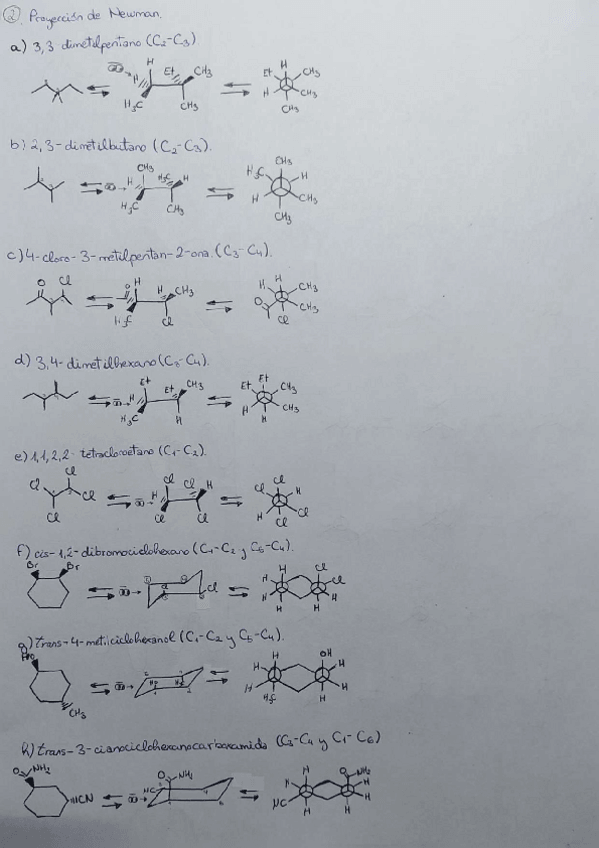 2. Proyección de Newman.
a) 3,3 dimetilpentano (C2-C3)
H
H
Et
CH3
H3C
CH3
Et
H
CH3
H
CH3
CH3
b) 2,3-dimetilbutano (C2-C3).
CH3
H
H3C
H
H3C
CH3
CH3
H3C
H
H
CH3
CH3
c) 4-cloro-3-metilpentan-2-ona. (C3-C4).
O
Cl
O
H
H
CH3
H3C
Cl
H
H
CH3
O
CH3
Cl
d) 3,4-dimetilhexano (C3-C4).
Et
H
Et
CH3
H3C
H
Et
Et
CH3
H
CH3
H
e) 1,1,2,2-tetracloroetano (C1-C2).
Cl
Cl
Cl
Cl
Cl
H
Cl
H
Cl
Cl
Cl
Cl
H
H
Cl
Cl
f) cis-1,2-dibromociclohexano (C1-C2 y C5-C4).
Br
Br
Cl
H
H
H
H
Cl
Cl
H
H
g) trans-4-metilciclohexanol (C1-C2 y C5-C4).
HO
CH3
H
H
H
H3C
H
OH
H
H
H
h) trans-3-cianociclohexanocarboxamida (C3-C4 y C1-C6)
O
NH2
CN
O
NH2
NC
H
H
NC
H
O
NH2
H
H
H